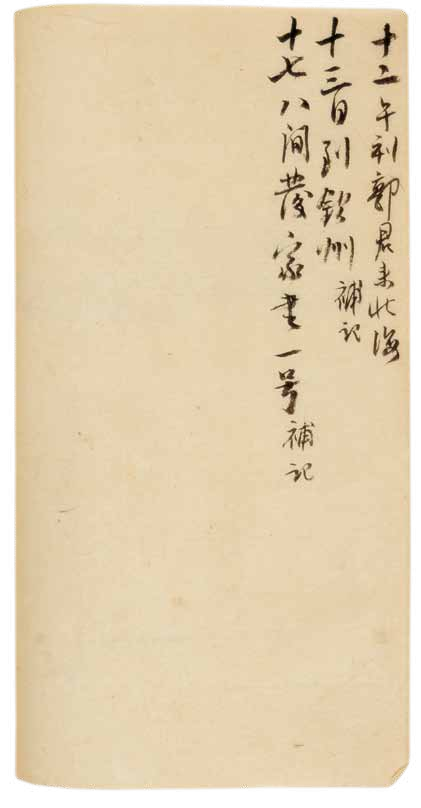 十二午刻郭君来北海
十三日到钦州補記
十七八间發家书一号補記